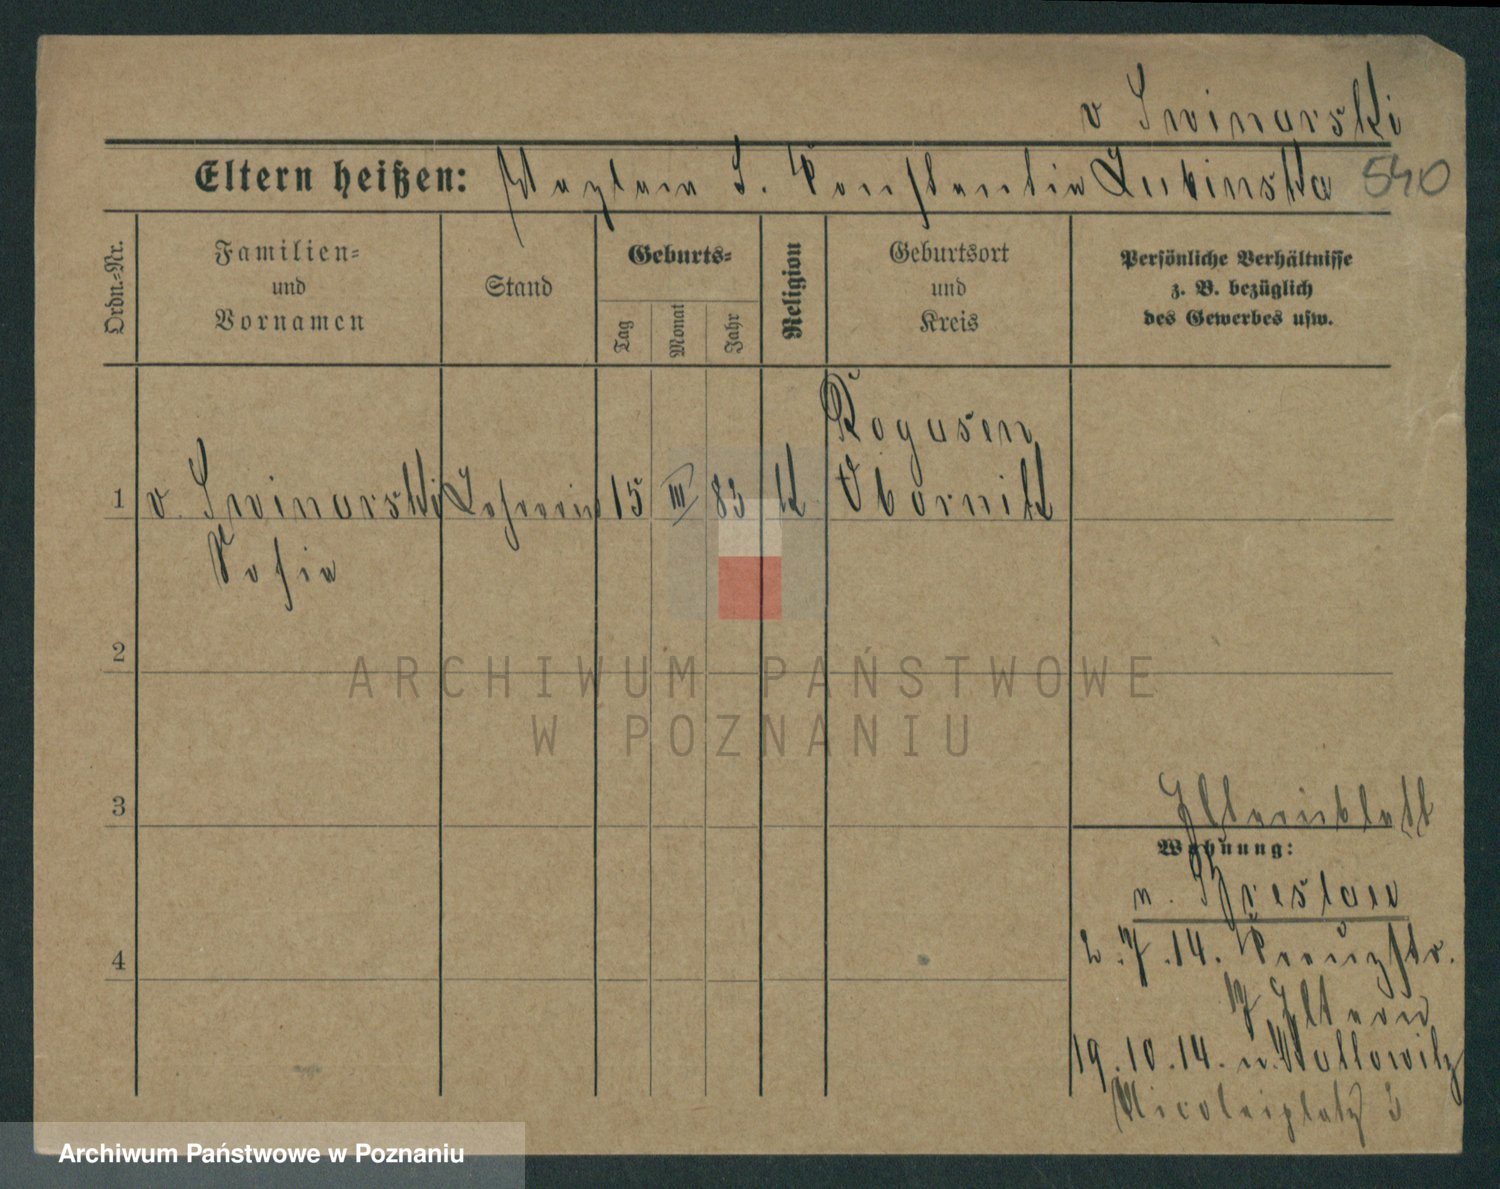 v Swinarski
Eltern heißen: Wazlaw S. Konstantia Lubinska 540
Ordn.-Nr.
Familien-
und
Vornamen
Stand
Geburts-
Tag
Monat
Jahr
Religion
Geburtsort
und
Kreis
Persönliche Verhältnisse
z. B. bezüglich
des Gewerbes usw.
Rogasen
1 v. Swinarski Lehrerin 15 III 83 k Obornik
Sofia
2
3
Elternblatt
Wohnung:
n. Breslau
4
2.7.14. Kreuzstr.
17 Eltern
19.10.14. n.
Nicolaiplatz 3
ARCHIWUM PAŃSTWOWE
W POZNANIU
Archiwum Państwowe w Poznaniu